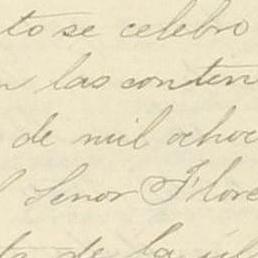 to se celebro
n las conten
de mil ochoc
l Senor Flore
de la